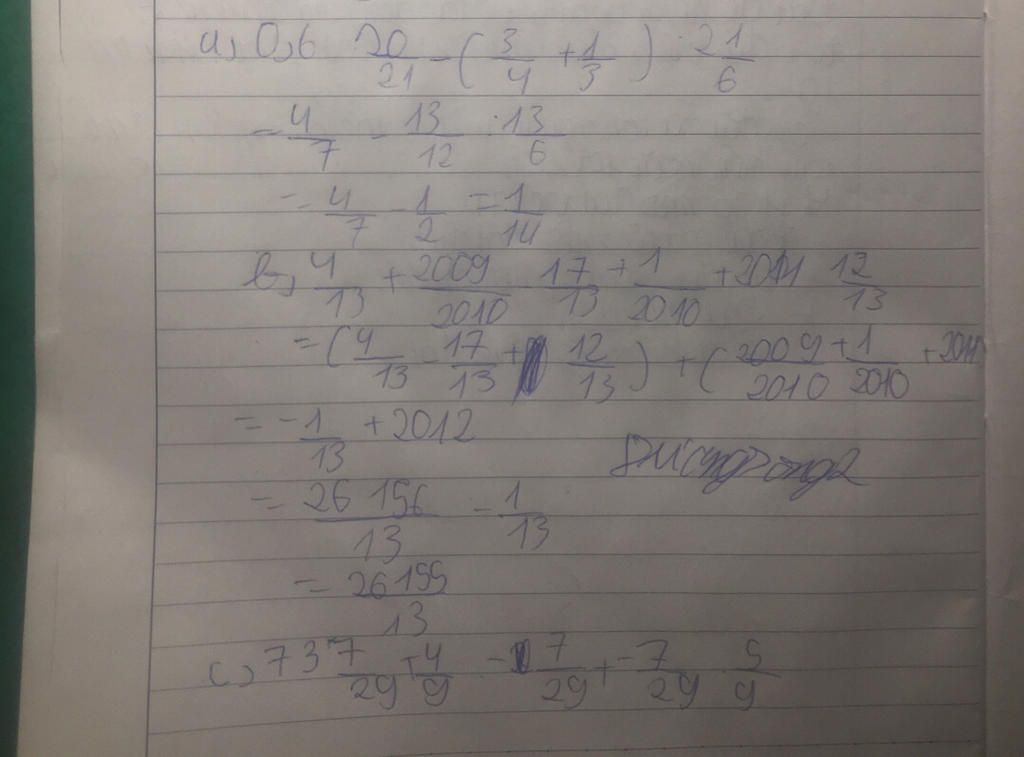 a, 0,6 20/21 - ( 3/4 + 1/3 ) : 2 1/6
= 4/7 - 13/12 : 13/6
= 4/7 - 1/2 = 1/14
b, 4/13 + 2009/2010 - 17/13 + 1/2010 + 2011 12/13
= ( 4/13 - 17/13 + 12/13 ) + ( 2009/2010 + 1/2010 + 2011
= - 1/13 + 2012
= 26 156/13 - 1/13
= 26155/13
c, 7/29 4/9 - 7/29 + - 7/29 . 5/9